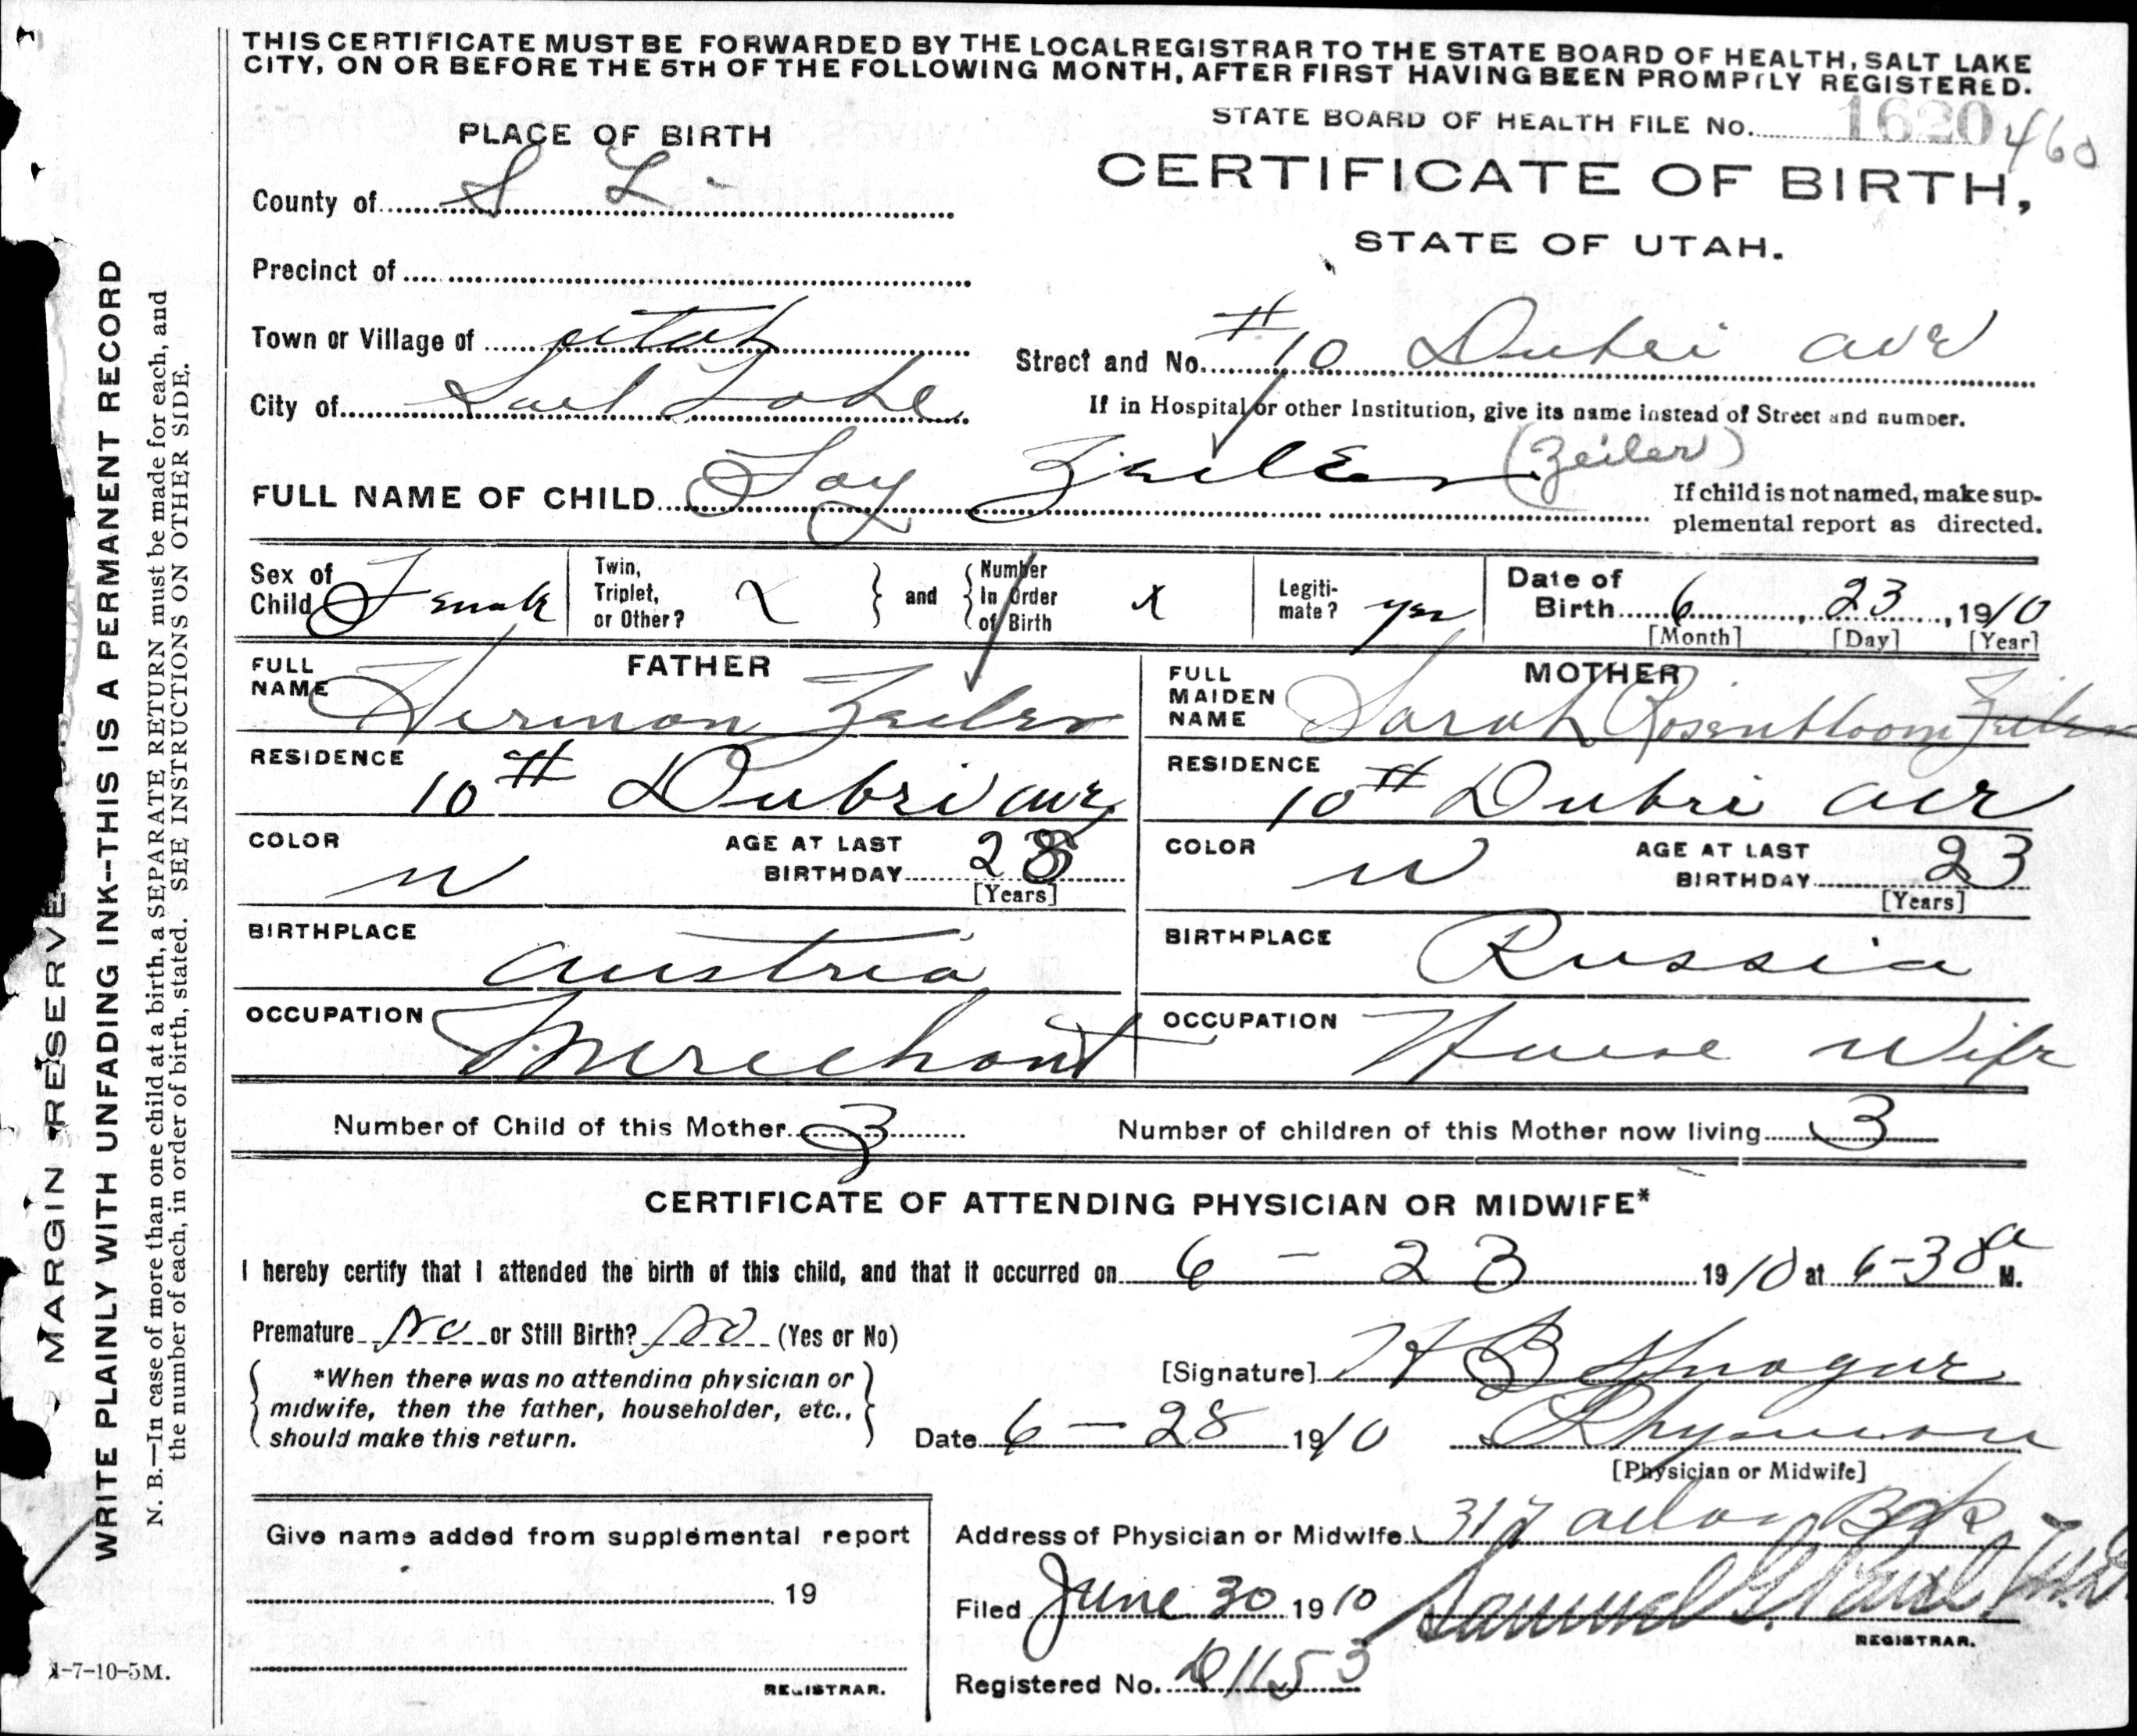 THIS CERTIFICATE MUST BE FORWARDED BY THE LOCAL REGISTRAR TO THE STATE BOARD OF HEALTH, SALT LAKE
CITY, ON OR BEFORE THE 5TH OF THE FOLLOWING MONTH, AFTER FIRST HAVING BEEN PROMPTLY REGISTERED.
STATE BOARD OF HEALTH FILE No. 1620 460
PLACE OF BIRTH
CERTIFICATE OF BIRTH,
STATE OF UTAH.
County of S L
Precinct of
Town or Village of utah
Street and No. #10 Dubei ave
City of Salt Lake
If in Hospital or other Institution, give its name instead of Street and number.
FULL NAME OF CHILD Foy Zeiler (Zeiler)
If child is not named, make sup-
plemental report as directed.
Sex of Child Female
Twin, Triplet, or Other? x and Number In Order of Birth x
Legiti-mate? yes
Date of Birth 6, 23, 1910
[Month] [Day] [Year]
FATHER
FULL NAME Herman Zeiler
RESIDENCE 10th Dubri ave
COLOR w
AGE AT LAST BIRTHDAY 28
[Years]
BIRTHPLACE Austria
OCCUPATION Merchant
MOTHER
FULL MAIDEN NAME Sarah Rosenbloom Zeiler
RESIDENCE 10th Dubri ave
COLOR w
AGE AT LAST BIRTHDAY 23
[Years]
BIRTHPLACE Russia
OCCUPATION House Wife
Number of Child of this Mother 3
Number of children of this Mother now living 3
CERTIFICATE OF ATTENDING PHYSICIAN OR MIDWIFE*
I hereby certify that I attended the birth of this child, and that it occurred on 6 - 23 1910 at 6-38 a M.
Premature No or Still Birth? No (Yes or No)
*When there was no attending physician or
midwife, then the father, householder, etc.,
should make this return.
[Signature] H B
Date 6 - 28 1910 Physician
[Physician or Midwife]
Give name added from supplemental report
19
REGISTRAR.
Address of Physician or Midwife 317
Filed June 30 1910 Samuel G. Paul, M.D.
REGISTRAR.
Registered No. D1153
1-7-10-5M.
MARGIN RESERVE
WRITE PLAINLY WITH UNFADING INK--THIS IS A PERMANENT RECORD
N. B.—In case of more than one child at a birth, a SEPARATE RETURN must be made for each, and
the number of each, in order of birth, stated. SEE INSTRUCTIONS ON OTHER SIDE.